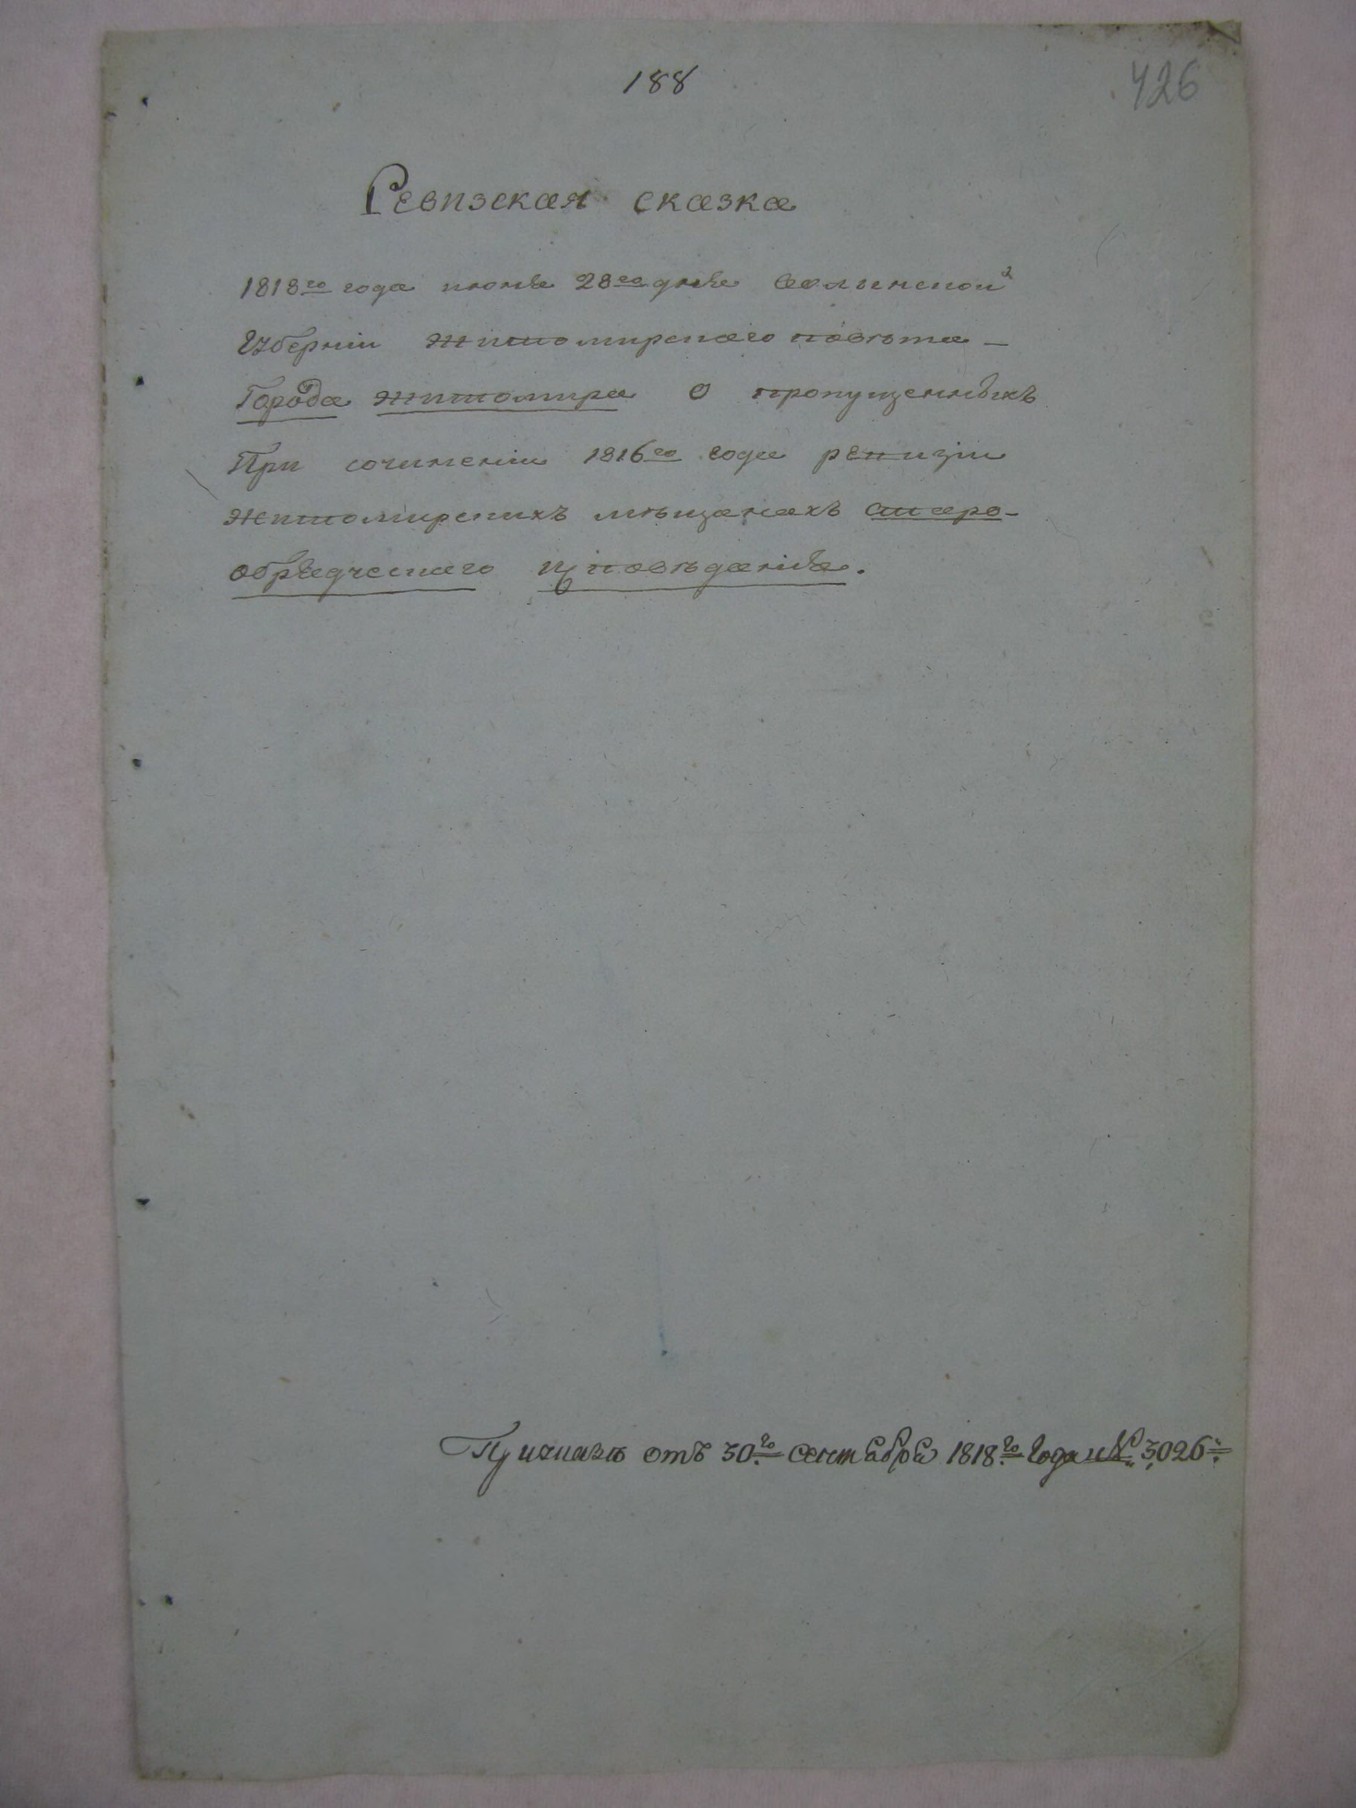 188
426
Ревизская сказка
1818го года июня 28го дня Волынской
Губерніи Житомирскаго повѣта –
Города Житомира О пропущенныхъ
При сочиненіи 1816го года ревизіи
Житомирскихъ мѣщанахъ старо-
обрядческаго исповѣданія.
При указѣ отъ 30го сентября 1818го Года № 3026